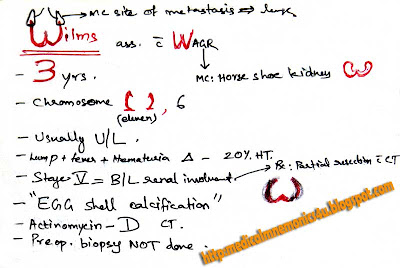 MC site of metastasis ⇒ lung
Wilms ass. c̄ WAGR
MC: Horse shoe kidney
- 3 yrs.
- Chromosome 11, 6
(eleven)
- Usually U/L.
- Lump + fever + Hematuria Δ - 20% HT.
Rx: Partial resection c̄ CT
- Stage V = B/L renal
- "EGG shell calcification"
- Actinomycin - D CT.
- Preop. biopsy NOT done.